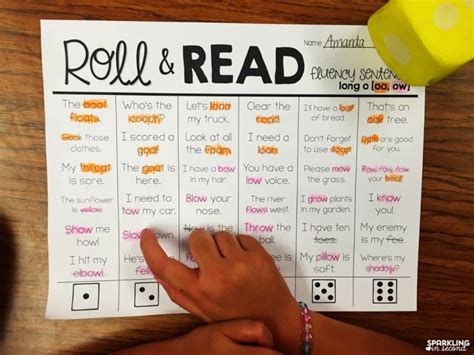 Roll & READ
Name Amanda
fluency sentences
long o [oa, ow]
The boat
floats.
Who's the
coach?
Let's load
my truck.
Clear the
I'll have a loaf
of bread.
That's an
oak tree.
Soak those
clothes.
I scored a
goal!
Look at all
the foam.
I need a
loan.
Don't forget
to use soap.
are good
for you.
My throat
is sore.
The goat is
here.
I have a bow
in my hair.
You have a
low voice.
Row, row, row
your boat.
The sunflower
is yellow.
I need to
tow my car.
Blow your
nose.
The river
flows west.
I grow plants
in my yard.
I know
you!
Show me
how!
Slow down.
is the
Throw the
ball.
I have ten
toes.
My enemy
is my foe.
I hit my
elbow!
He's
My pillow is
soft.
Where's my
shadow?
SPARKLING
in second